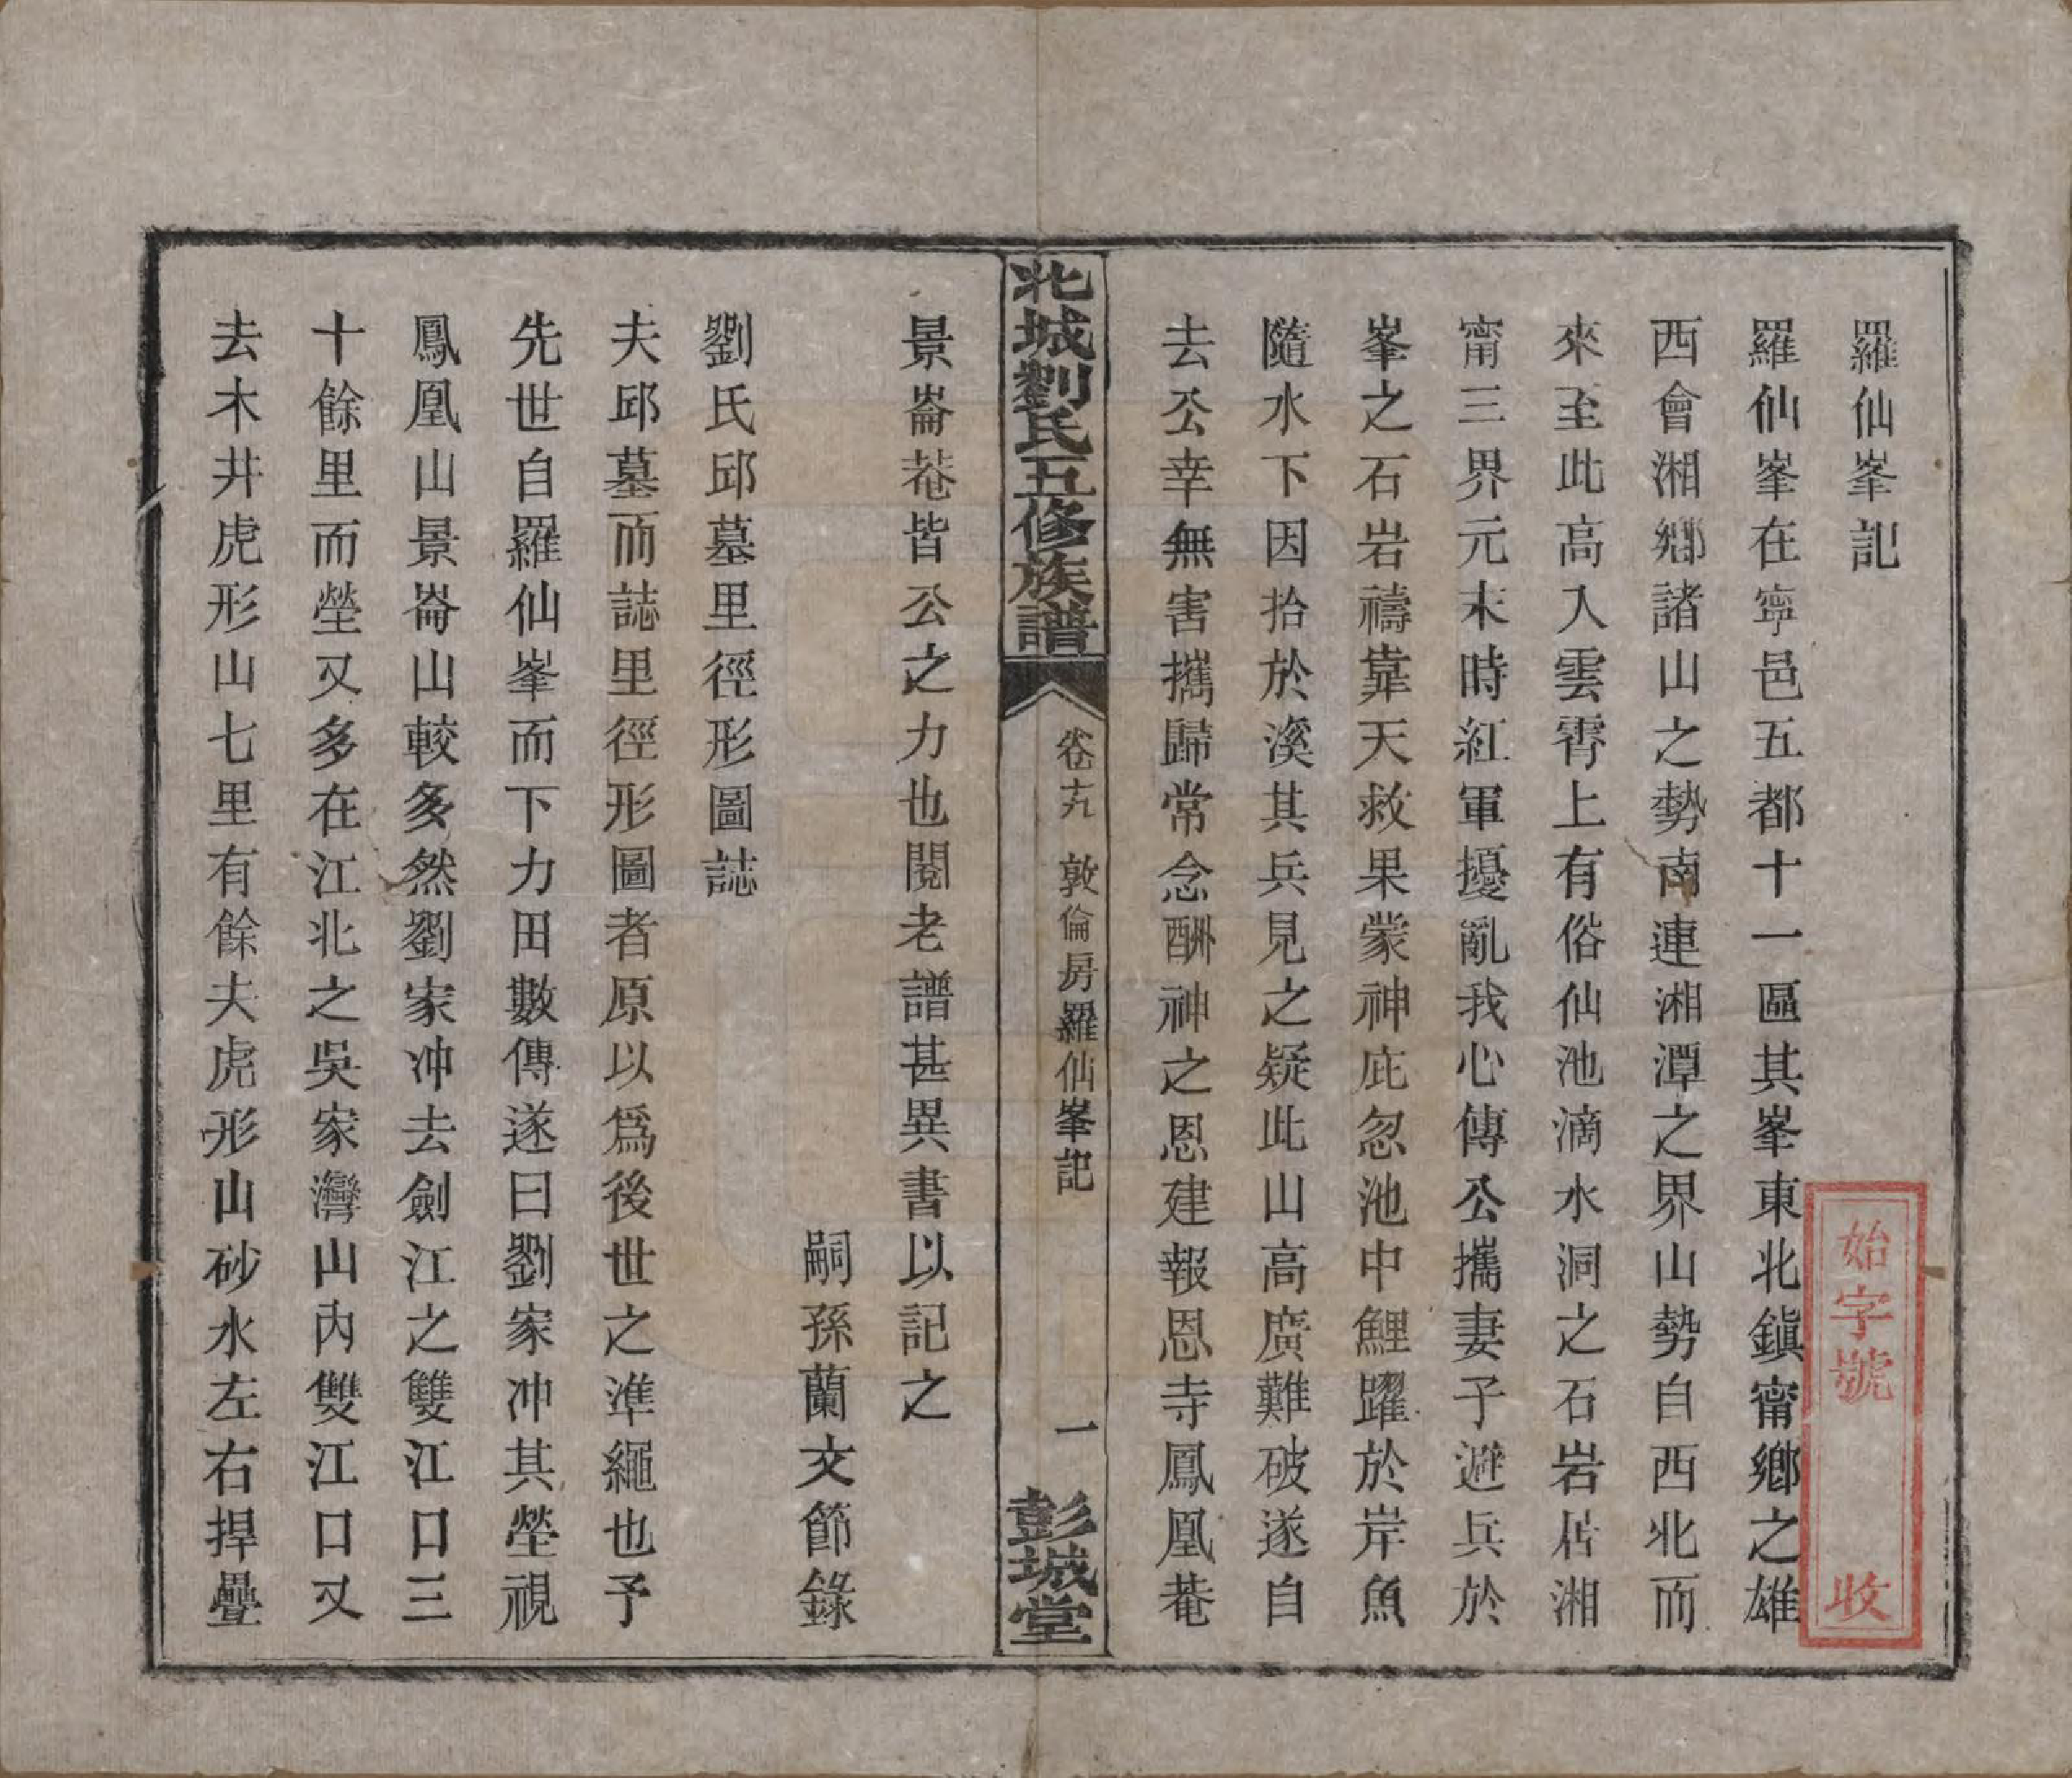 羅仙峯記
羅仙峯在寧邑五都十一區其峯東北鎮甯鄉之雄
西會湘鄉諸山之勢南連湘潭之界山勢自西北而
來至此高入雲霄上有俗仙池滴水洞之石岩居湘
甯三界元末時紅軍擾亂我心傳公攜妻子避兵於
峯之石岩禱靠天救果蒙神庇忽池中鯉躍於岸魚
隨水下因拾於溪其兵見之疑此山高廣難破遂自
去公幸無害攜歸常念酬神之恩建報恩寺鳳凰菴
始字號 收
北城劉氏五修族譜
卷十九 敦倫房羅仙峯記
一
彭城堂
景崙菴皆公之力也閱老譜甚異書以記之
嗣孫蘭文節錄
劉氏邱墓里徑形圖誌
夫邱墓而誌里徑形圖者原以爲後世之準繩也予
先世自羅仙峯而下力田數傳遂曰劉家冲其塋視
鳳凰山景崙山較多然劉家冲去劍江之雙江口三
十餘里而塋又多在江北之吳家灣山內雙江口又
去木井虎形山七里有餘夫虎形山砂水左右捍疊